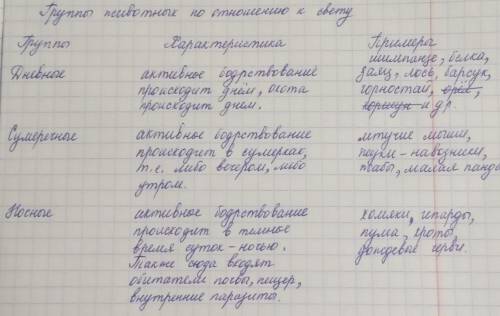 Группы животных по отношению к свету
Группы Характеристика Примеры
шимпанзе, белка,
Дневные активное бодрствование заяц, лось, барсук,
происходит днём, охота горностай, орёл,
происходит днем. коршун и др.
Сумеречные активное бодрствование летучие мыши,
происходит в сумерках, жуки-навозники,
т.е. либо вечером, либо жабы, малая панда
утром.
Ночные активное бодрствование хомяки, гепарды,
происходит в темное пума, кроты,
время суток - ночью. дождевые черви.
Также сюда входят
обитатели почвы, пещер,
внутренние паразиты.